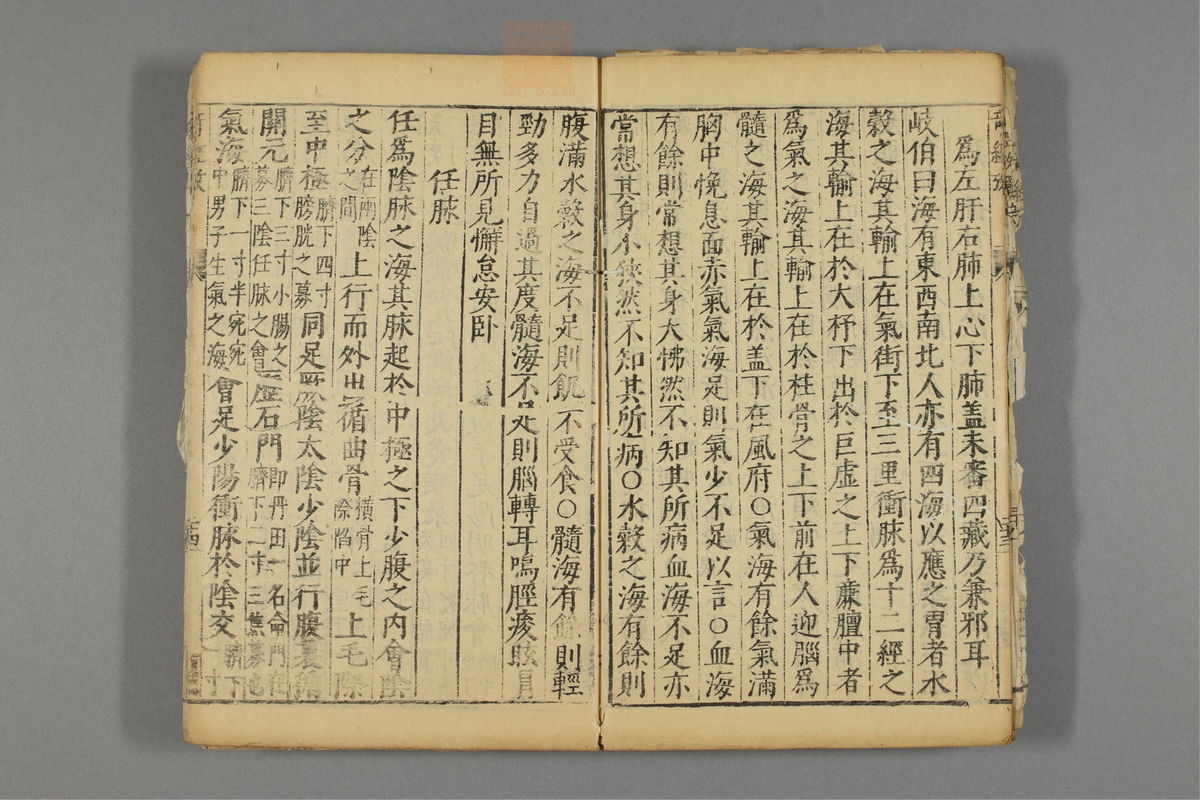 爲左肝右肺上心下肺盖未審四藏乃兼邪耳
岐伯曰海有東西南北人亦有四海以應之胃者水
穀之海其輸上在氣街下至三里衝脉爲十二經之
海其輸上在於大杼下出於巨虛之上下廉膻中者
爲氣之海其輸上在於柱骨之上下前在人迎腦爲
髓之海其輸上在於盖下在風府○氣海有餘氣滿
胸中悗息面赤氣氣海足則氣少不足以言○血海
有餘則常想其身大怫然不知其所病血海不足亦
常想其身小狹然不知其所病○水穀之海有餘則
腹滿水穀之海不足則飢不受食○髓海有餘則輕
勁多力自過其度髓海不足則腦轉耳鳴脛痠眩冒
目無所見懈怠安卧
任脉
任爲陰脉之海其脉起於中極之下少腹之內會陰
之分在兩陰之間上行而外出循曲骨橫骨上毛際陷中上毛際
至中極臍下四寸膀胱之募同足厥陰太陰少陰並行腹裏循
關元臍下三寸小腸之募三陰任脉之會歷石門即丹田一名命門在臍下二寸三焦募也
氣海臍下一寸半宛宛中男子生氣之海會足少陽衝脉於陰交臍下寸